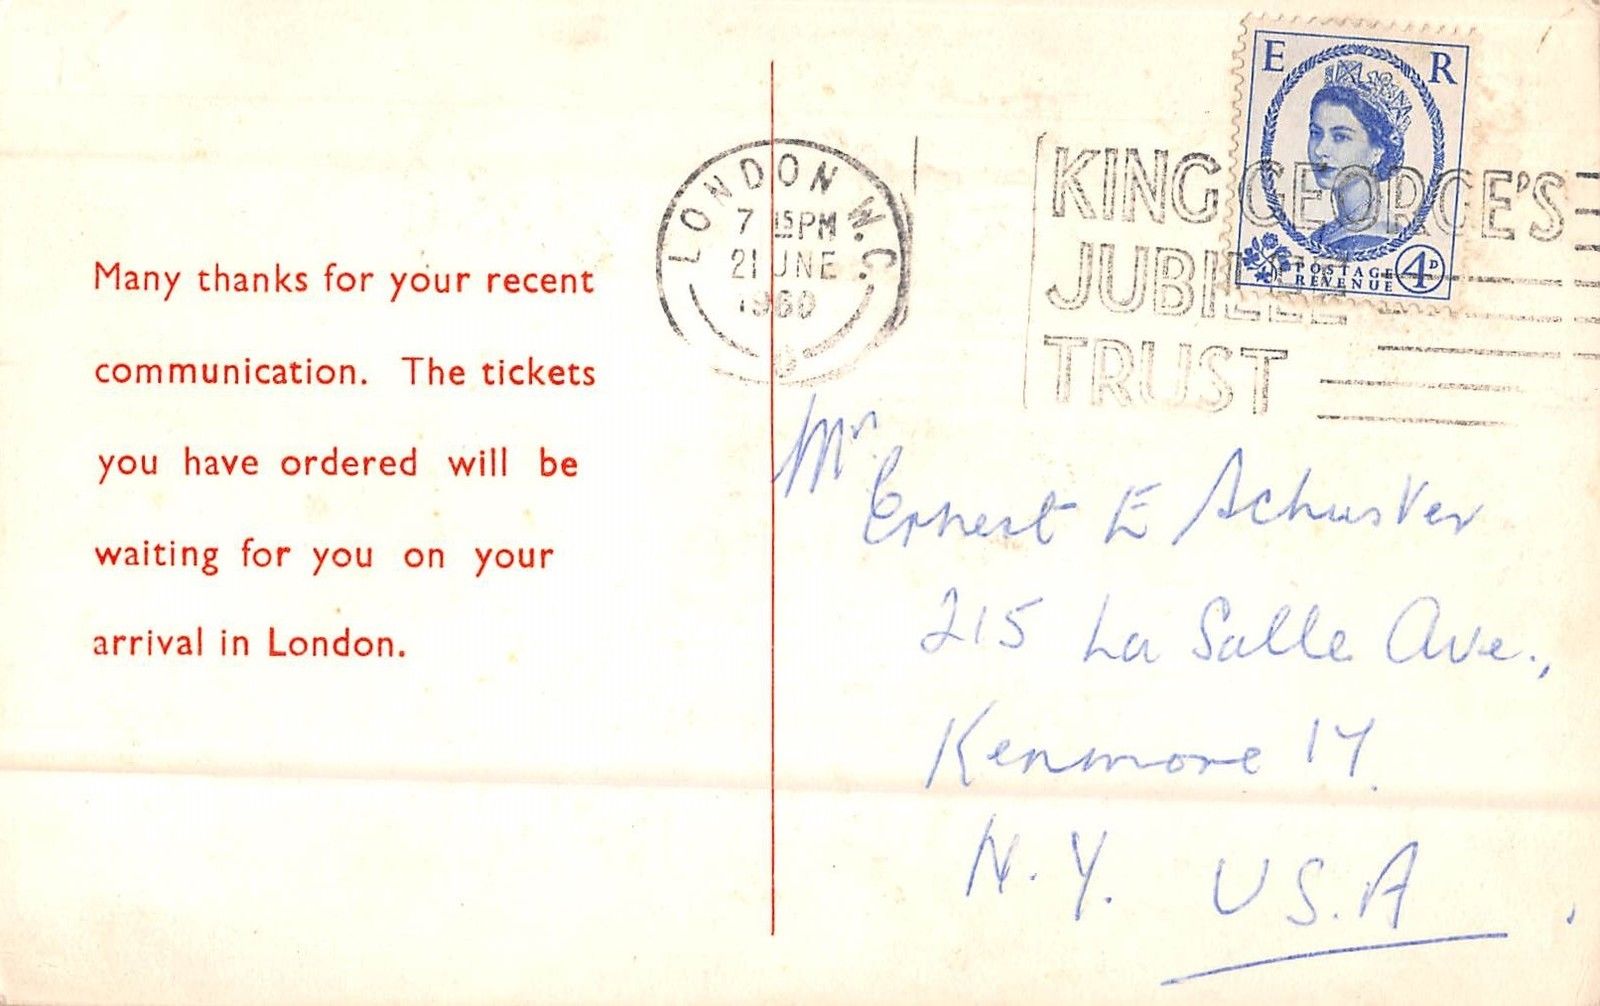 Many thanks for your recent
communication. The tickets
you have ordered will be
waiting for you on your
arrival in London.
LONDON W.C.
7 15PM
21 JNE
1960
KING GEORGE'S
JUBILEE
TRUST
E R
POSTAGE
REVENUE
4D
Mr
Ernest E Schuster
215 La Salle Ave.,
Kenmore 17.
N.Y. U.S.A